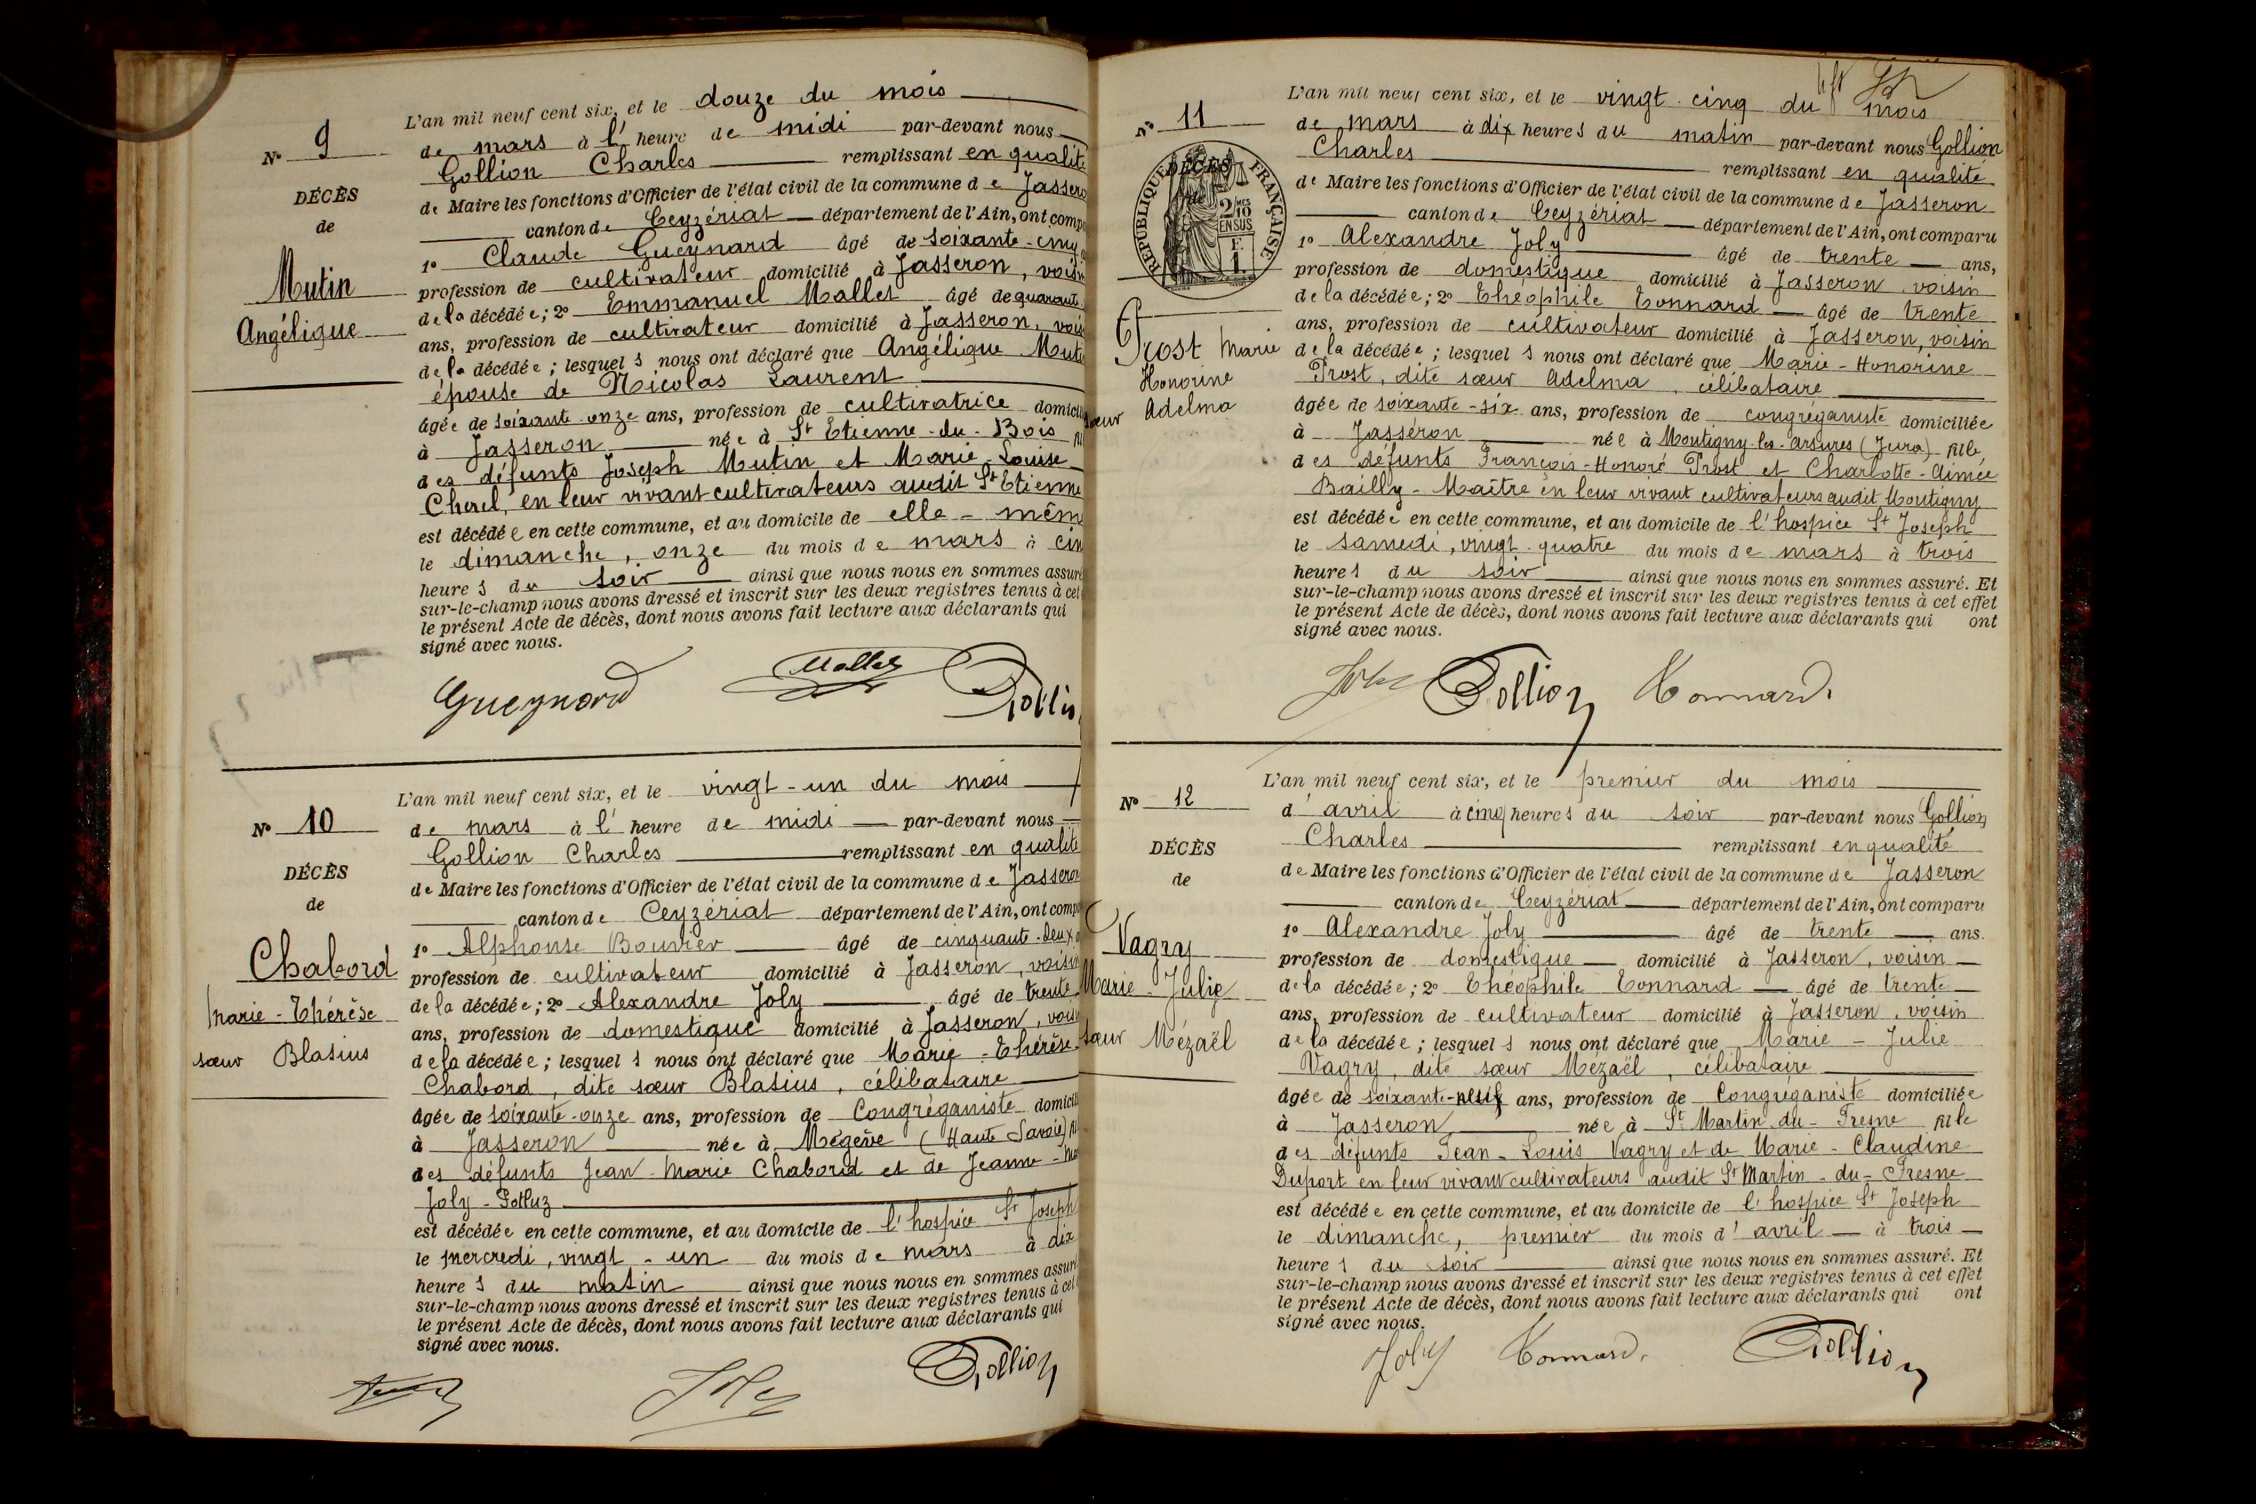 N° 9
DÉCÈS
de
Mutin
Angélique
L'an mil neuf cent six, et le douze du mois
de mars à l' heure de midi par-devant nous
Gollion Charles remplissant en qualité
de Maire les fonctions d'Officier de l'état civil de la commune de Jassero
canton de Ceyzériat département de l'Ain, ont comp
1° Claude Gueynard âgé de soixante-cinq
profession de cultivateur domicilié à Jasseron, voisin
de la décédée; 2° Emmanuel Mallet âgé de quarante
ans, profession de cultivateur domicilié à Jasseron, vois
de la décédée; lesquels nous ont déclaré que Angélique Muti
épouse de Nicolas Laurent
âgée de soixante-onze ans, profession de cultivatrice domicili
à Jasseron née à St Etienne-du-Bois
des défunts Joseph Mutin et Marie-Louise
Cherel, en leur vivant cultivateurs audit St Etienne
est décédée en cette commune, et au domicile de elle-mêm
le dimanche, onze du mois de mars à cin
heures du soir ainsi que nous nous en sommes assuré
sur-le-champ nous avons dressé et inscrit sur les deux registres tenus à cet
le présent Acte de décès, dont nous avons fait lecture aux déclarants qui
signé avec nous.
Gueynard Mallet Gollion
N° 10
DÉCÈS
de
Chabord
Marie-Thérèse
sœur Blasius
L'an mil neuf cent six, et le vingt-un du mois
de mars à l' heure de midi par-devant nous
Gollion Charles remplissant en qualité
de Maire les fonctions d'Officier de l'état civil de la commune de Jasseron
canton de Ceyzériat département de l'Ain, ont comp
1° Alphonse Bouvier âgé de cinquante-deux
profession de cultivateur domicilié à Jasseron, voisin
de la décédée; 2° Alexandre Joly âgé de trente
ans, profession de domestique domicilié à Jasseron, vois
de la décédée; lesquels nous ont déclaré que Marie-Thérèse
Chabord, dite sœur Blasius, célibataire
âgée de soixante-onze ans, profession de Congréganiste domicili
à Jasseron née à Mégève (Haute Savoie)
des défunts Jean-Marie Chabord et de Jeanne-Ma
Joly-Pottuz
est décédée en cette commune, et au domicile de l'hospice St Joseph
le mercredi, vingt-un du mois de mars à dix
heures du matin ainsi que nous nous en sommes assuré
sur-le-champ nous avons dressé et inscrit sur les deux registres tenus à cet
le présent Acte de décès, dont nous avons fait lecture aux déclarants qui
signé avec nous.
Joly Gollion
N° 11
DÉCÈS
de
RÉPUBLIQUE FRANÇAISE
2/10
EN SUS
F.
1.
Prost Marie
Honorine
sœur Adelma
L'an mil neuf cent six, et le vingt-cinq du mois
de mars à dix heures du matin par-devant nous Gollion
Charles remplissant en qualité
de Maire les fonctions d'Officier de l'état civil de la commune de Jasseron
canton de Ceyzériat département de l'Ain, ont comparu
1° Alexandre Joly âgé de trente ans,
profession de domestique domicilié à Jasseron voisin
de la décédée; 2° Théophile Tonnard âgé de trente
ans, profession de cultivateur domicilié à Jasseron, voisin
de la décédée; lesquels nous ont déclaré que Marie-Honorine
Prost, dite sœur Adelma, célibataire
âgée de soixante-six ans, profession de congréganiste domiciliée
à Jasseron née à Montigny-les-Arsures (Jura) fille
des défunts François-Honoré Prost et Charlotte-Aimée
Bailly-Maître en leur vivant cultivateurs audit Montigny
est décédée en cette commune, et au domicile de l'hospice St Joseph
le samedi, vingt-quatre du mois de mars à trois
heures du soir ainsi que nous nous en sommes assuré. Et
sur-le-champ nous avons dressé et inscrit sur les deux registres tenus à cet effet
le présent Acte de décès, dont nous avons fait lecture aux déclarants qui ont
signé avec nous.
Joly Gollion Tonnard
N° 12
DÉCÈS
de
Vagry
Marie-Julie
sœur Mézaël
L'an mil neuf cent six, et le premier du mois
d'avril à cinq heures du soir par-devant nous Gollion
Charles remplissant en qualité
de Maire les fonctions d'Officier de l'état civil de la commune de Jasseron
canton de Ceyzériat département de l'Ain, ont comparu
1° Alexandre Joly âgé de trente ans.
profession de domestique domicilié à Jasseron, voisin
de la décédée; 2° Théophile Tonnard âgé de trente
ans, profession de cultivateur domicilié à Jasseron, voisin
de la décédée; lesquels nous ont déclaré que Marie-Julie
Vagry, dite sœur Mézaël, célibataire
âgée de soixante-neuf ans, profession de Congréganiste domiciliée
à Jasseron née à St Martin-du-Fresne fille
des défunts Jean-Louis Vagry et de Marie-Claudine
Duport en leur vivant cultivateurs audit St Martin-du-Fresne
est décédée en cette commune, et au domicile de l'hospice St Joseph
le dimanche, premier du mois d'avril à trois
heures du soir ainsi que nous nous en sommes assuré. Et
sur-le-champ nous avons dressé et inscrit sur les deux registres tenus à cet effet
le présent Acte de décès, dont nous avons fait lecture aux déclarants qui ont
signé avec nous.
Joly Tonnard. Gollion